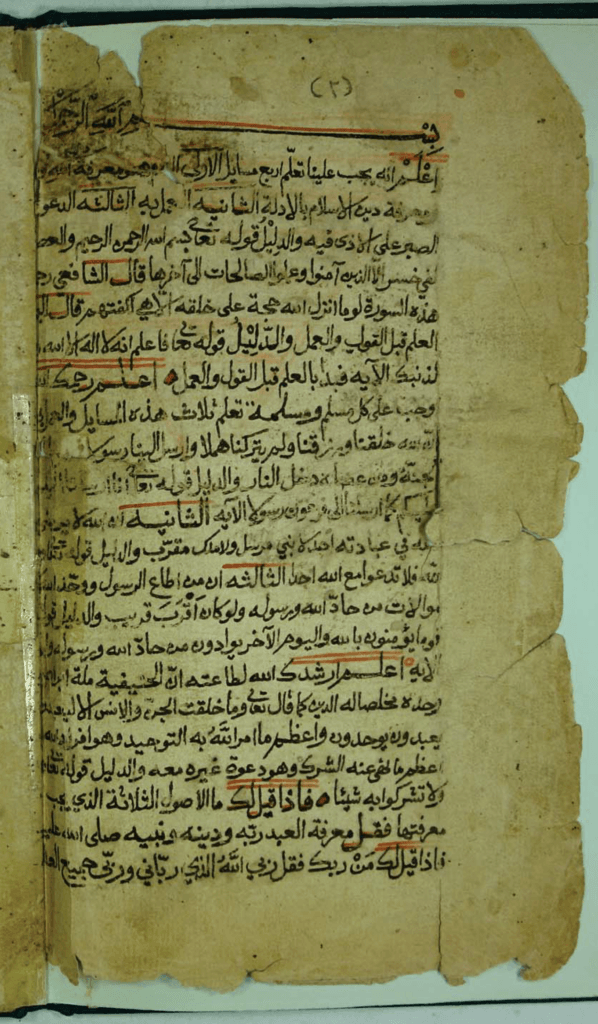 (٢)
بسم الله الرحمن
إعلم انه يجب علينا تعلّم اربع مسايل الاولى العلم وهو معرفة الله
ومعرفة دين الاسلام بالادلة الثانيه العمل به الثالثه الدعو
الصبر على الاذى فيه والدليل قوله تعالى بسم الله الرحمن الرحيم والعصر
لفي خسر الا الذين آمنوا وعملوا الصالحات الى آخرها قال الشافعي رحـ
هذه السورة لو ما انزل الله حجة على خلقه الا هي لكفتهم قال
العلم قبل القول والعمل والدليل قوله تعالى فاعلم انه لا اله الا الله
لذنبك الآيه فبدأ بالعلم قبل القول والعمل اعلم رحمك الله
وجب على كل مسلم ومسلمة تعلم ثلاث هذه المسايل والعمل
ان الله خلقنا ورزقنا ولم يتركنا هملا وارسل الينا رسولا
الجنة ومن عصاه دخل النار والدليل قوله تعالى انا ارسلنا
عليكم كما ارسلنا الى فرعون رسولا الآيه الثانيه ان الله لا يرضى
معه في عبادته احد لا نبي مرسل ولا ملك مقرّب والدليل قوله تعالى
لله فلا تدعوا مع الله احدا الثالثه ان من اطاع الرسول ووحّد الله
موالات من حادّ الله ورسوله ولو كان أقرب قريب والدليل قو
قوما يؤمنون بالله واليوم الآخر يوادون من حادّ الله ورسوله
الايه اعلم ارشدك الله لطاعته انّ الحنيفية ملة ابرا
وحده مخلصا له الدين كما قال تعالى وما خلقت الجنّ والانس الا ليعبدون
يعبدون يوحدون واعظم ما امر الله به التوحيد وهو افراد الله
اعظم ما نهى عنه الشرك وهو دعوة غيره معه والدليل قوله تعالى
ولا تشركوا به شيئا فاذا قيل لك ما الاصول الثلاثة الذي يجب
معرفتها فقل معرفة العبد ربّه ودينه ونبيه صلى الله عليه
فاذا قيل لك مَنْ ربك فقل ربي الله الذي ربّاني وربّى جميع العا